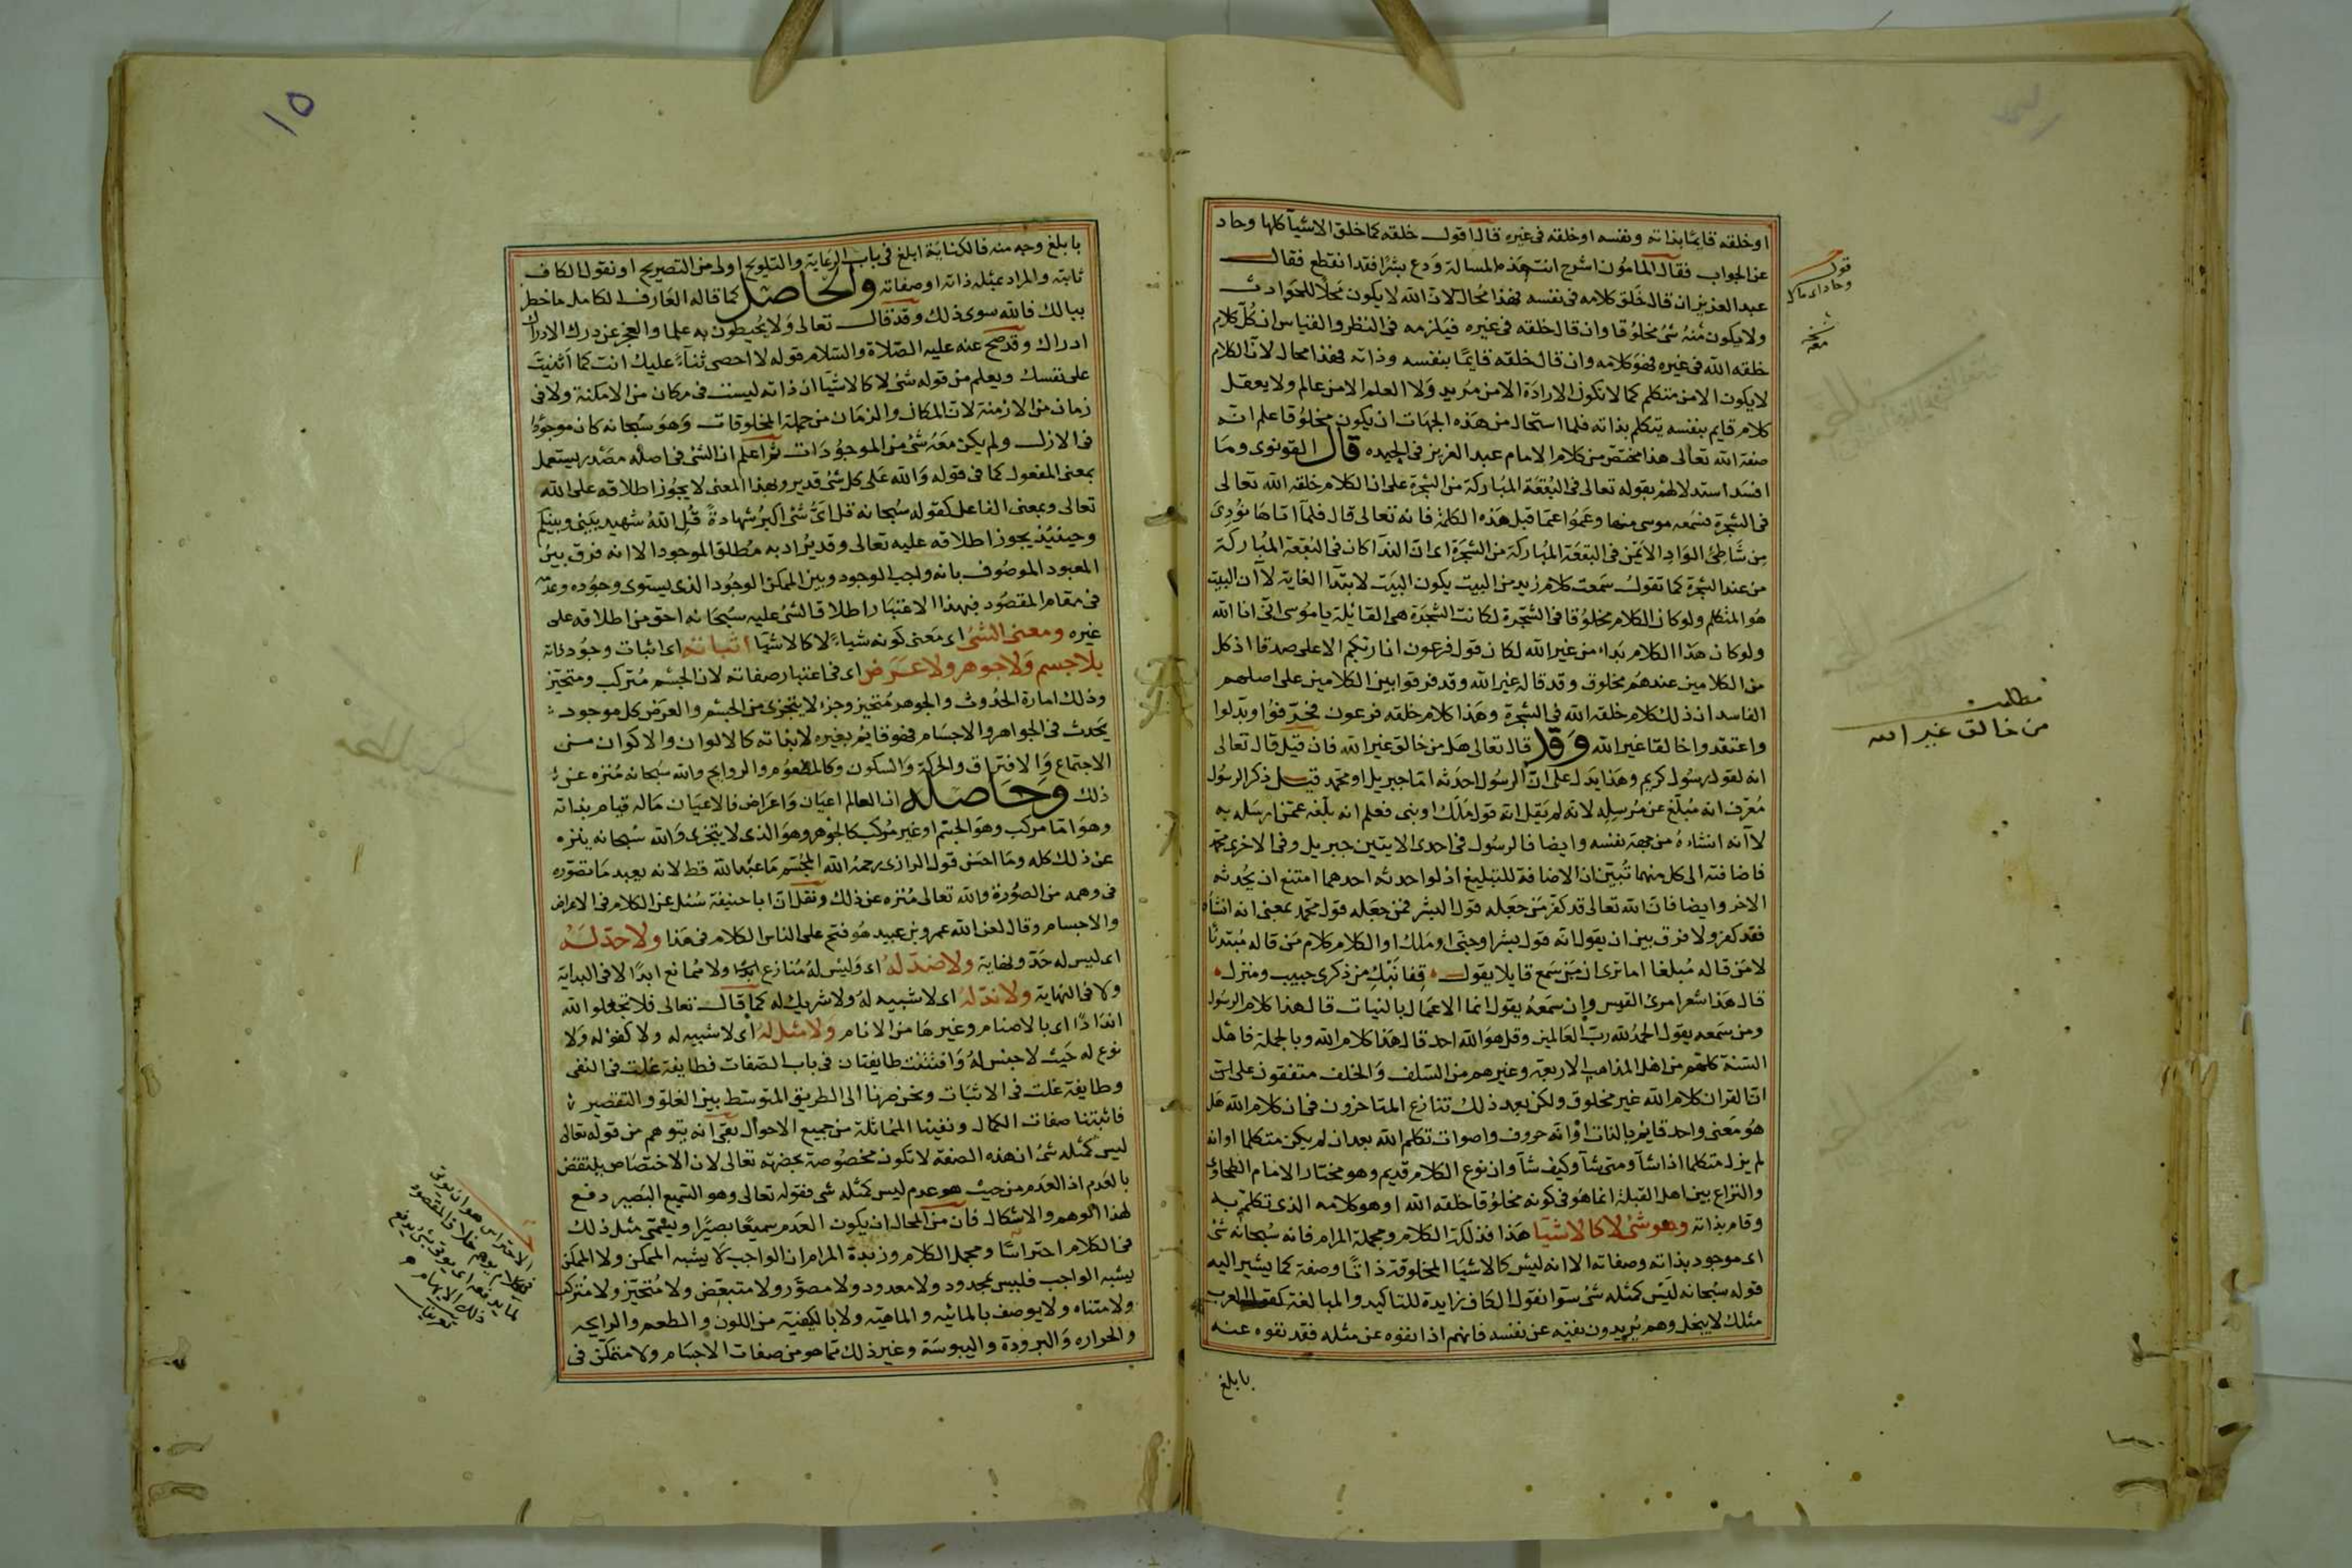 اوخلقه قايمًا بذاته ونفسه اوخلقه فى غيره قال اقول خلقه كما خلق الاشيآ كلها وحاد
عن الجواب فقال المامون اشرح انت هذه المسالة ودع بشرًا فقد انقطع فقال
عبد العزيز ان قال خلق كلامه فى نفسه فهذا محال لان الله لا يكون محلًا للحوادث
ولا يكون منه شئ مخلوقا وان قال خلقه فى غيره فيلزمه فى النظر والقياس ان كل كلام
خلقه الله فى غيره فهو كلامه وان قال خلقه قايمًا بنفسه وذاته فهذا محال لان الكلام
لا يكون الا من متكلم كما لا تكون الارادة الا من مريد ولا العلم الا من عالم ولا يعقل
كلام قايم بنفسه يتكلم بذاته فلما استحال من هذه الجهات ان يكون مخلوقا علم انه
صفة الله تعالى هذا مختصر من كلام الامام عبد العزيز فى الحيده قال القونوى وما
افسد استدلالهم بقوله تعالى فى البقعة المباركة من الشجرة على ان الكلام خلقه الله تعالى
فى الشجرة فسمعه موسى منها وعموا عما قبل هذه الكلمة فانه تعالى قال فلما اتاها نودى
من شاطئ الواد الايمن فى البقعة المباركة من الشجرة اى ان الندآ كان فى البقعة المباركة
من عند الشجرة كما تقول سمعت كلام زيد من البيت يكون البيت لابتدآ الغاية لا ان البيت
هو المتكلم ولو كان الكلام مخلوقا فى الشجرة لكانت الشجرة هى القائلة يا موسى انى انا الله
ولو كان هذا الكلام بداء من غير الله لكان قول فرعون انا ربكم الاعلى صدقا اذ كل
من الكلامين عندهم مخلوق وقد قاله غير الله وقد فرقوا بين الكلامين على اصلهم
الفاسد ان ذلك كلام خلقه الله فى الشجرة وهذا كلام خلقه فرعون فحرفوا وبدلوا
واعتقدوا خالقا غير الله وقد قال تعالى هل من خالق غير الله فان قيل قال تعالى
انه لقول رسول كريم وهذا يدل على ان الرسول احدثه اما جبريل او محمد قيل ذكر الرسول
معرف انه مبلغ عن مرسله لانه لم يقل انه قول ملك او نبى فعلم انه بلغه عمن ارسله به
لا انه انشاءه من جهة نفسه وايضا فالرسول فى احدى الايتين جبريل وفى الاخرى محمد
فاضافته الى كل منهما تبين ان الاضافة للتبليغ اذ لو احدثه احدهما امتنع ان يحدثه
الاخر وايضا فان الله تعالى قد كفر من جعله قول البشر فمن جعله قول محمد بمعنى انه انشأه
فقد كفر ولا فرق بين ان يقول انه قول بشر او جنى او ملك اذ الكلام كلام من قاله مبتدئا
لا من قاله مبلغا اما ترى ان من سمع قايلا يقول قفا نبك من ذكرى حبيب ومنزل
قال هذا شعر امرئ القيس وان سمعه يقول انما الاعمال بالنيات قال هذا كلام الرسول
ومن سمعه يقول الحمد لله رب العالمين وقل هو الله احد قال هذا كلام الله وبالجملة فاهل
السنة كلهم من اهل المذاهب الاربعة وغيرهم من السلف والخلف متفقون على ان
القران كلام الله غير مخلوق ولكن بعد ذلك تنازع المتاخرون فى ان كلام الله هل
هو معنى واحد قايم بالذات او انه حروف واصوات تكلم الله بعد ان لم يكن متكلما او انه
لم يزل متكلما اذا شآ ومتى شآ وكيف شآ وان نوع الكلام قديم وهو مختار الامام الطحاوى
والنزاع بين اهل القبلة انما هو فى كونه مخلوقا خلقه الله او هو كلامه الذى تكلم به
وقام بذاته وهو شئ لا كالاشيآ هذا فذلكة الكلام ومجملة المرام فانه سبحانه شئ
اى موجود بذاته وصفاته الا انه ليس كالاشيآ المخلوقة ذاتًا وصفة كما يشير اليه
قوله سبحانه ليس كمثله شئ سوآ نقول الكاف زايدة للتاكيد والمبالغة كقول العرب
مثلك لا يبخل وهم يريدون نفيه عن نفسه فانهم اذا نفوه عن مثله فقد نفوه عنه
بابلغ
قوله
وحاد اى مال
مطلب
من خالق غير الله
١٥
بابلغ وجه منه فالكناية ابلغ فى باب الرعاية والتلويح اولى من التصريح او نقول الكاف
ثابتة والمراد بمثله ذاته او صفاته والحاصل كما قاله العارف الكامل ما خطر
ببالك فالله سوى ذلك وقد قال تعالى ولا يحيطون به علما والعجز عن درك الادراك
ادراك وقد صح عنه عليه الصلاة والسلام قوله لا احصى ثنآء عليك انت كما اثنيت
على نفسك ويعلم من قوله شئ لا كالاشيآ ان ذاته ليست فى مكان من الامكنة ولا فى
زمان من الازمنة لان المكان والزمان من جملة المخلوقات وهو سبحانه كان موجودًا
فى الازل ولم يكن معه شئ من الموجودات ثم اعلم ان الشئ فى اصله مصدر يستعمل
بمعنى المفعول كما فى قوله والله على كل شئ قدير وبهذا المعنى لا يجوز اطلاقه على الله
تعالى وبمعنى الفاعل كقوله سبحانه قل اى شئ اكبر شهادة قل الله شهيد بينى وبينكم
وحينئذ يجوز اطلاقه عليه تعالى وقد يراد به مطلق الموجود الا انه فرق بين
المعبود الموصوف بانه واجب الوجود وبين الممكن الوجود الذى يستوى وجوده وعدمه
فى مقام المقصود فبهذا الاعتبار اطلاق الشئ عليه سبحانه احق من اطلاقه على
غيره ومعنى الشئ اى معنى كونه شياء لا كالاشيآ اثباته اى اثبات وجود ذاته
بلا جسم ولا جوهر ولا عرض اى فى اعتبار صفاته لان الجسم متركب ومتحيز
وذلك امارة الحدوث والجوهر متحيز وجزء لا يتجزى من الجسم والعرض كل موجود
يحدث فى الجواهر والاجسام فهو قايم بغيره لا بذاته كالالوان والاكوان من
الاجتماع والافتراق والحركة والسكون وكالطعوم والروايح والله سبحانه منزه عن
ذلك وحاصله ان العالم اعيان واعراض فالاعيان ماله قيام بذاته
وهو اما مركب وهو الجسم او غير مركب كالجوهر وهو الذى لا يتجزى والله سبحانه ينزه
عن ذلك كله وما احسن قول الرازى رحمه الله المجسم ما عبد الله قط لانه يعبد ما تصوره
فى وهمه من الصورة والله تعالى منزه عن ذلك ونقل ان ابا حنيفة سئل عن الكلام فى الاعراض
والاجسام وقال لعن الله عمرو بن عبيد هو فتح على الناس الكلام فى هذا ولا حد له
اى ليس له حد ونهاية ولا ضد له اى وليس له منازع ابدًا ولا ممانع ابدًا لا فى البداية
ولا فى النهاية ولا ند له اى لا شبيه له ولا شريك له كما قال تعالى فلا تجعلوا الله
اندادًا اى بالاصنام وغيرها من الانام ولا مثل له اى لا شبيه له ولا كفو له ولا
نوع له حيث لا جنس له وافتتنت طايفتان فى باب الصفات فطايفة غلت فى النفى
وطايفة غلت فى الاثبات ونحن صرنا الى الطريق المتوسط بين الغلو والتقصير
فاثبتنا صفات الكمال ونفينا المماثلة من جميع الاحوال بقى انه يتوهم من قوله تعالى
ليس كمثله شئ ان هذه الصفة لا تكون مخصوصة بحضرته تعالى لان الاختصاص ينتقض
بالعدم اذ العدم من حيث هو عدم ليس كمثله شى فقوله تعالى وهو السميع البصير دفع
لهذا الوهم والاشكال فان من المحال ان يكون العدم سميعًا بصيرًا ويسمى مثل ذلك
فى الكلام احتراسًا ومجمل الكلام وزبدة المرام ان الواجب لا يشبه الممكن ولا الممكن
يشبه الواجب فليس بمحدود ولا معدود ولا مصور ولا متبعض ولا متحيز ولا متركب
ولا متناه ولا يوصف بالمائية والماهية ولا بالكيفية من اللون والطعم والرايحه
والحراره والبرودة واليبوسة وغير ذلك مما هو من صفات الاجسام ولا متمكن فى
الاحتراس هو ان يوتى
فى كلام يوهم خلاف المقصود
بما يدفعه اى يوتى بشئ يدفع
ذلك الابهام